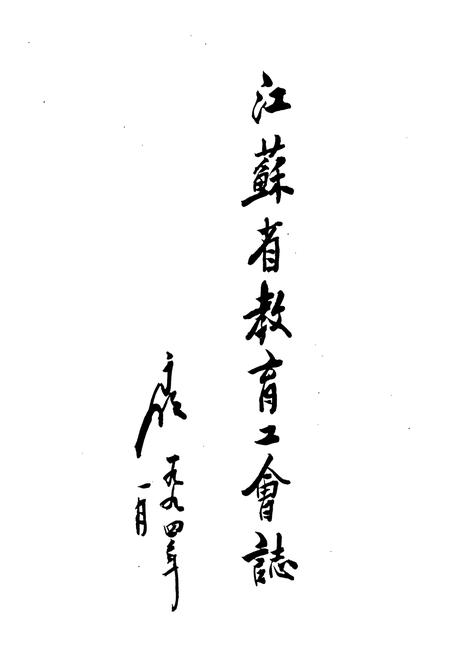 江蘇省教育工會誌
一九九四年
一月